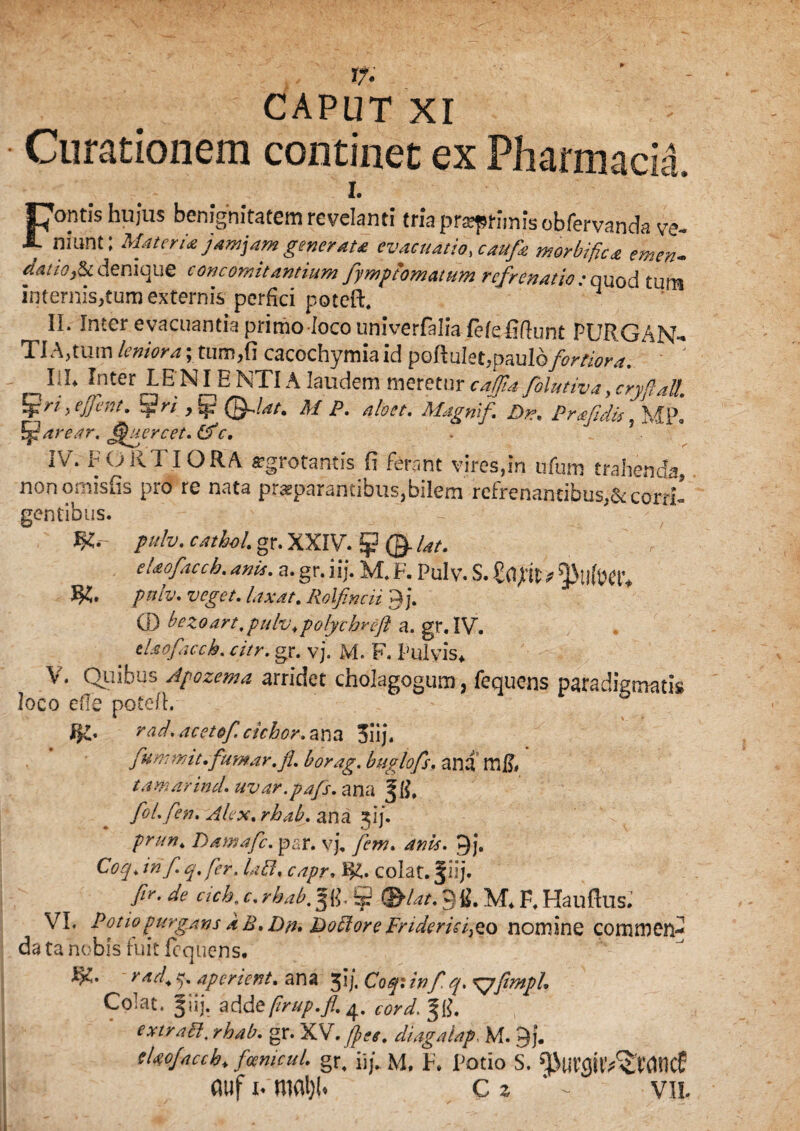 17.
CAPUT XI
Curationem continet ex Pharmaciâ.
I.
Fontis hujus benignitatem revelanti tria præprimis obſervanda ve-
niunt; Materiæ jamjam generatæ evacuatio, cauſæ morbificæ emen-
datio, & denique concomitantium ſymptomatum refrenatio: quod tum
internis, tum externis perfici poteſt.
II. Inter evacuantia primo loco univerſalia ſeſe ſiſtunt PURGAN-
TIA, tum leniora; tum, ſi cacochymia id poſtulet, paulò fortiora.
III. Inter LENIENTIA laudem meretur caſſia ſolutiva, cryſtall.
🜿ri, eſſent. 🜿ri, 🜿 ⊕lat. M P. aloet. Magniſ. Dn. Præſidis, MP.
🜿 arear. Quercet. &c.
IV. FORTIORA ægrotantis ſi ferant vires, in uſum trahenda,
non omisſis pro re nata præparantibus, bilem refrenantibus, & corri-
gentibus.
℞. pulv. cathol. gr. XXIV. 🜿 ⊕lat.
elæoſacch. anis. a. gr. iij. M. F. Pulv. S. Laxir-Pulver.
℞. pulv. veget. laxat. Rolfincii ℈j.
🜕 bezoart. pulv. polychreſt a. gr. IV.
elæoſacch. citr. gr. vj. M. F. Pulvis.
V. Quibus Apozema arridet cholagogum, ſequens paradigmatis
loco eſſe poteſt.
℞. rad. acetoſ. cichor. ana ʒiij.
ſummit. fumar. fl. borag. bugloſs. ana mß.
tamarind. uvar. paſs. ana ℥ß.
fol. ſen. Alex. rhab. ana ʒij.
prun. Damaſc. par. vj. ſem. anis. ℈j.
Coq. in ſ. q. ſer. lact. capr. ℞. colat. ℥iij.
ſir. de cich. c. rhab. ℥ß. 🜿 ⊕lat. ℈ß. M. F. Hauſtus.
VI. Potio purgans à B. Dn. Doctore Friderici, eo nomine commen-
data nobis fuit ſequens.
℞. rad. 5. aperient. ana ʒij. Coq: in ſ. q. 🜄 ſimpl.
Colat. ℥iij. adde ſirup. fl. 4. cord. ℥ß.
extract. rhab. gr. XV. ſpec. diagalap. M. ℈j.
elæoſacch. fœnicul. gr. iij. M. F. Potio S. Purgir-Tranck
auf 1. mahl. C 2 VII.